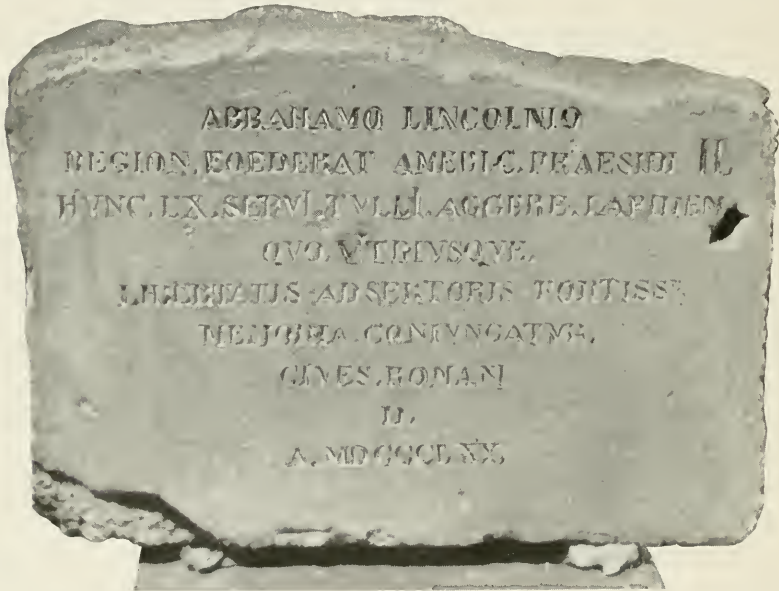 ABRAHAMO LINCOLNIO
REGION. FOEDERAT AMERIC. PRAESIDI II
HVNC. EX. SERVI. TVLLI. AGGERE. LAPIDEM
QVO. VTRIVSQVE.
LIBERTATIS ADSERTORIS FORTISS
MEMORIA. CONIVNGATVR.
CIVES. ROMANI
D.
A. MDCCCLXX.